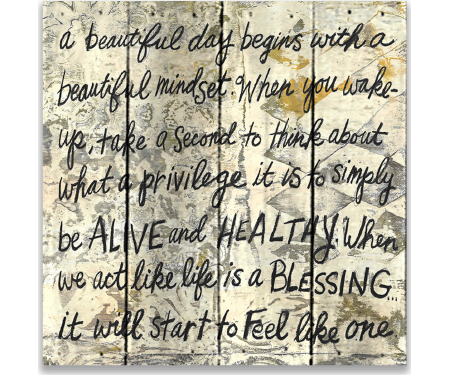 a beautiful day begins with a
beautiful mindset. When you wake-
up, take a second to think about
what a privilege it is to simply
be ALIVE and HEALTHY. When
we act like life is a BLESSING...
it will start to Feel like one.